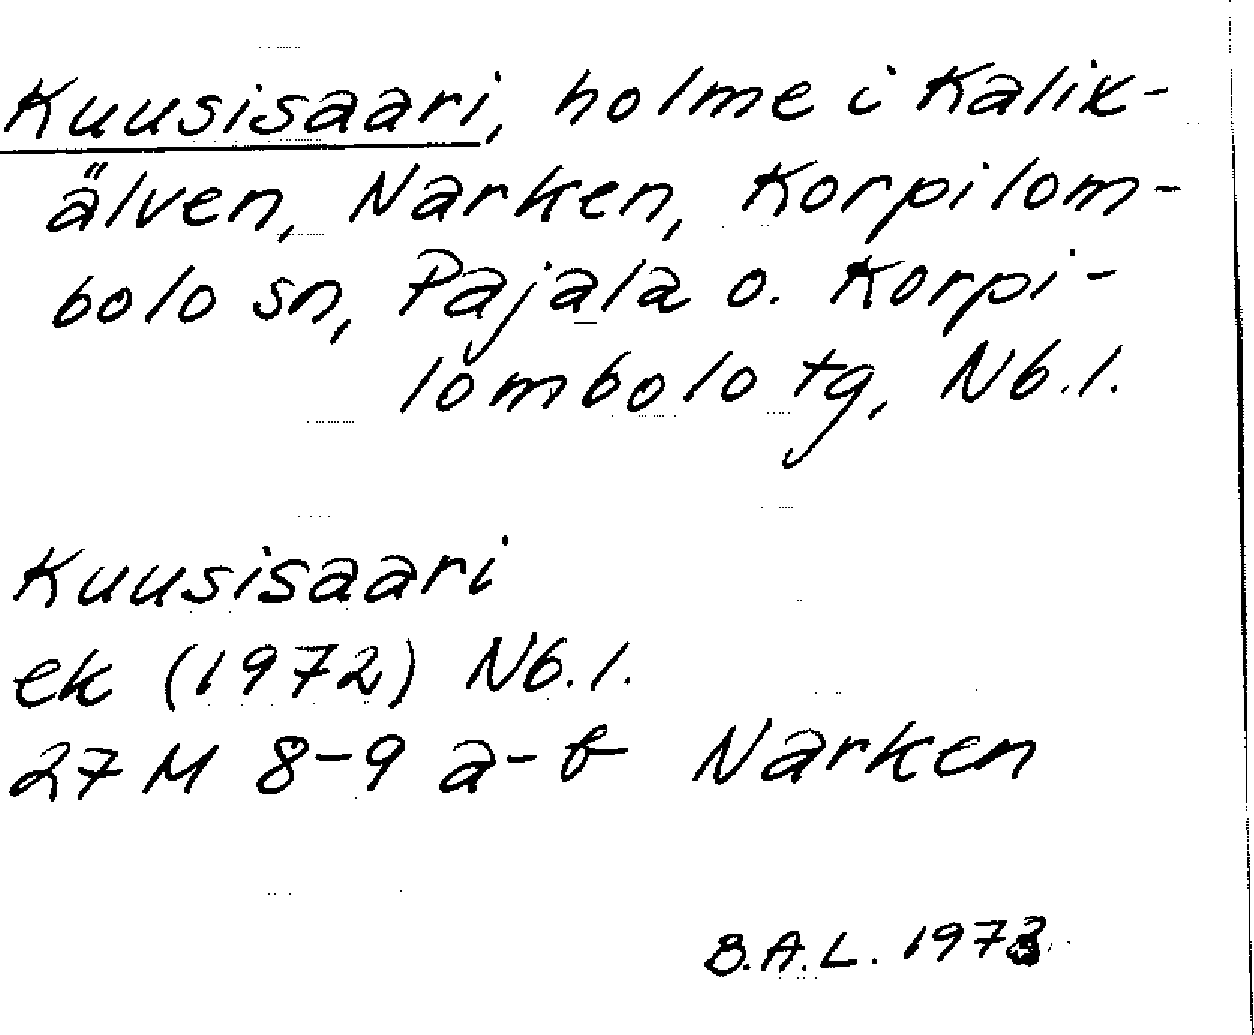 Kuusisaari, holme i Kalix-
älven, Narken, Korpilom-
bolo sn, Pajala o. Korpi-
lombolo tg, Nb.l.
Kuusisaari
ek (1972) Nb.l.
27 M 8-9 a-b Narken
B.A.L. 1973